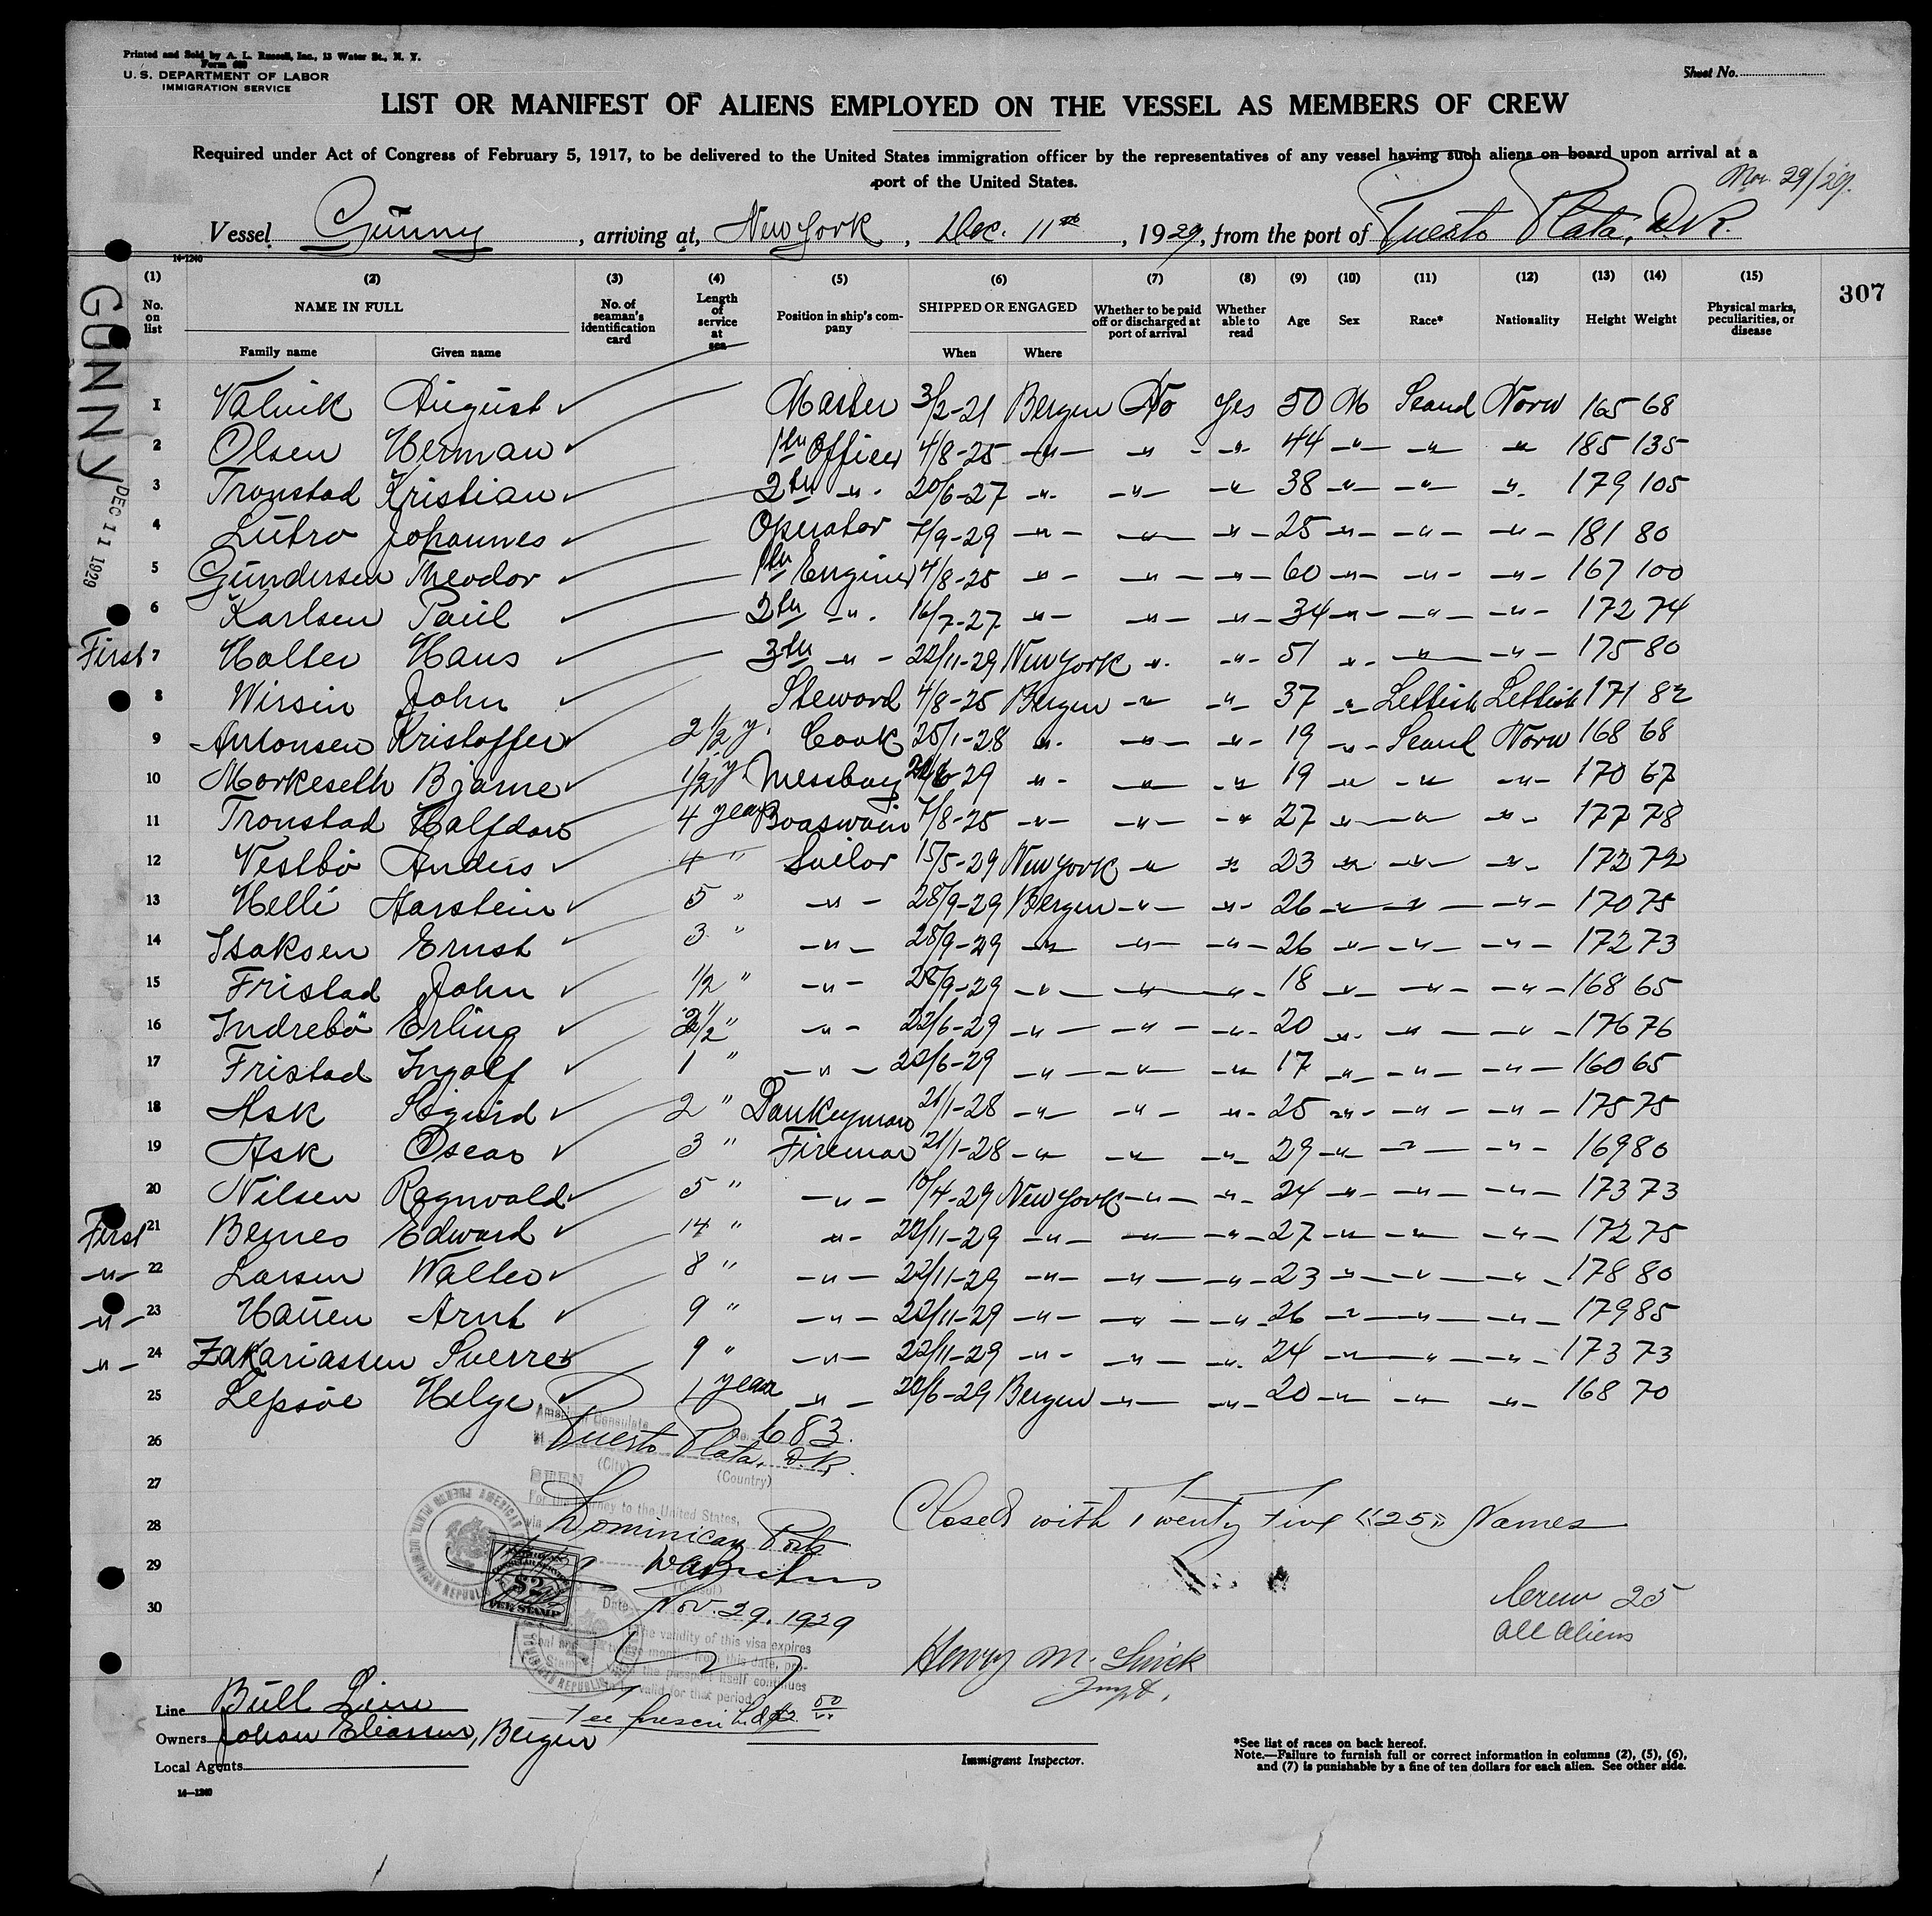 Printed and Sold by A. L. Russell, Inc., 13 Water St., N. Y.
Form 680
U. S. DEPARTMENT OF LABOR
IMMIGRATION SERVICE
Sheet No.
LIST OR MANIFEST OF ALIENS EMPLOYED ON THE VESSEL AS MEMBERS OF CREW
Required under Act of Congress of February 5, 1917, to be delivered to the United States immigration officer by the representatives of any vessel having such aliens on board upon arrival at a
port of the United States.
Nov. 29/29.
Vessel Gunny, arriving at, New York, Dec. 11th, 1929, from the port of Puerto Plata, D.R.
14-1240
(1) (2) (3) (4) (5) (6) (7) (8) (9) (10) (11) (12) (13) (14) (15)
No. on list NAME IN FULL No. of seaman's identification card Length of service at sea Position in ship's company SHIPPED OR ENGAGED Whether to be paid off or discharged at port of arrival Whether able to read Age Sex Race* Nationality Height Weight Physical marks, peculiarities, or disease
Family name Given name When Where
307
GUNNY
DEC 11 1929
1 Valvik August Master 3/2-21 Bergen No Yes 50 M Scand Norw 165 68
2 Olsen Herman 1ht Officer 4/8-25 -"- -"- -"- 44 -"- -"- -"- 185 135
3 Tronstad Kristian 2tn -"- 20/6-27 -"- -"- -"- 38 -"- -"- -"- 179 105
4 Lutro Johannes Operator 7/9-29 -"- -"- -"- 25 -"- -"- -"- 181 80
5 Gundersen Theodor Engineer 4/8-25 -"- -"- -"- 60 -"- -"- -"- 167 100
6 Karlsen Paul 2tn -"- 16/7-27 -"- -"- -"- 34 -"- -"- -"- 172 74
First 7 Holter Hans 3tn -"- 22/11-29 New York -"- -"- 51 -"- -"- -"- 175 80
8 Wirsin John Steward 4/8-25 Bergen -"- -"- 37 -"- Lettish Lettish 171 82
9 Antonsen Kristoffer 2 1/2 y. Cook 25/1-28 -"- -"- -"- 19 -"- Scand Norw 168 68
10 Morkeseth Bjarne 1/2 y. Messboy -29 -"- -"- -"- 19 -"- -"- -"- 170 67
11 Tronstad Halfdan 4 years Boaswain 7/8-25 -"- -"- -"- 27 -"- -"- -"- 177 78
12 Vestbö Anders 4 " Sailor 15/5-29 New York -"- -"- 23 -"- -"- -"- 172 72
13 Helli Harstein 5 " -"- 28/9-29 Bergen -"- -"- 26 -"- -"- -"- 170 75
14 Isaksen Ernst 3 " -"- 28/9-29 -"- -"- -"- 26 -"- -"- -"- 172 73
15 Fristad John 1/2 " -"- 28/9-29 -"- -"- -"- 18 -"- -"- -"- 168 65
16 Indrebö Erling 2 1/2 " -"- 22/6-29 -"- -"- -"- 20 -"- -"- -"- 176 76
17 Fristad Ingolf 1 " -"- 22/6-29 -"- -"- -"- 17 -"- -"- -"- 160 65
18 Ask Sigurd 2 " Dankeyman 21/1-28 -"- -"- -"- 25 -"- -"- -"- 175 75
19 Ask Oscar 3 " Fireman 21/1-28 -"- -"- -"- 29 -"- -"- -"- 169 80
20 Nilsen Ragnvald 5 " -"- 10/4-29 New York -"- -"- 24 -"- -"- -"- 173 73
First 21 Bernes Edward 14 " -"- 22/11-29 -"- -"- -"- 27 -"- -"- -"- 172 75
-"- 22 Larsen Walter 8 " -"- 22/11-29 -"- -"- -"- 23 -"- -"- -"- 178 80
-"- 23 Hauen Arnt 9 " -"- 22/11-29 -"- -"- -"- 26 -"- -"- -"- 179 85
-"- 24 Zakariassen Sverre 9 " -"- 22/11-29 -"- -"- -"- 24 -"- -"- -"- 173 73
25 Lepsöe Helge 1 year -"- 22/6-29 Bergen -"- -"- 20 -"- -"- -"- 168 70
American Consulate
26 No. 683.
at Puerto Plata, D.R.
(City) (Country)
27 SEEN
For the journey to the United States,
Closed with Twenty Five «25» Names
28 via Dominican Ports
29
(Consul)
AMERICAN CONSULAR SERVICE
$2
FEE STAMP
Crew 25
30 Date Nov. 29, 1929
all aliens
The validity of this visa expires
twelve months from this date, provided
the passport itself continues
valid for that period.
Seal and Fee Stamp
Henry M. 
Inspt.
Line Bull Line
Fee prescribed $2.00
Owners Johan Eliassen, Bergen
Local Agents
Immigrant Inspector.
*See list of races on back hereof.
Note.—Failure to furnish full or correct information in columns (2), (5), (6),
and (7) is punishable by a fine of ten dollars for each alien. See other side.
14—1240